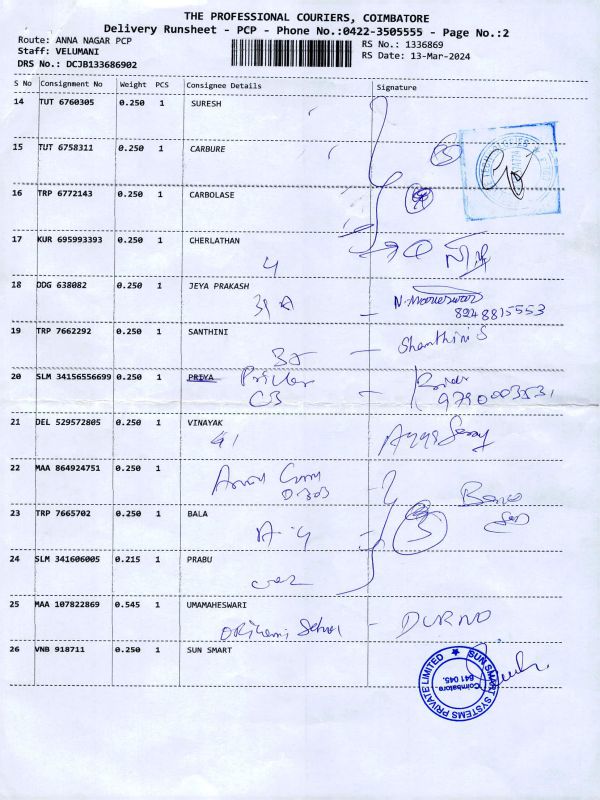 THE PROFESSIONAL COURIERS, COIMBATORE
Delivery Runsheet - PCP - Phone No.:0422-3505555 - Page No.:2
Route: ANNA NAGAR PCP
RS No.: 1336869
Staff: VELUMANI
RS Date: 13-Mar-2024
DRS No.: DCJB133686902
S No Consignment No Weight PCS Consignee Details Signature
14 TUT 6760305 0.250 1 SURESH
15 TUT 6758311 0.250 1 CARBURE
16 TRP 6772143 0.250 1 CARBOLASE
17 KUR 695993393 0.250 1 CHERLATHAN
4
18 DDG 638082 0.250 1 JEYA PRAKASH
31 A
8248815553
19 TRP 7662292 0.250 1 SANTHINI
Shanthini S
20 SLM 34156556699 0.250 1 PRIYA
C3
9790003531
21 DEL 529572805 0.250 1 VINAYAK
41
22 MAA 864924751 0.250 1
D-303
23 TRP 7665702 0.250 1 BALA
A-4
3
24 SLM 341606005 0.215 1 PRABU
25 MAA 107822869 0.545 1 UMAMAHESWARI
26 VNB 918711 0.250 1 SUN SMART
SUN SMART SYSTEMS PRIVATE LIMITED
Coimbatore
641 045.